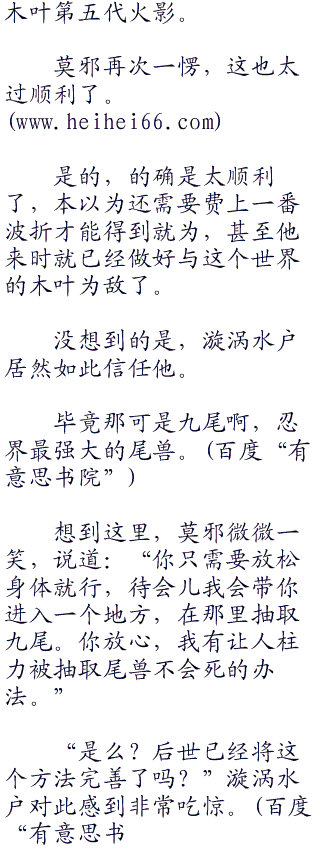 木叶第五代火影。
莫邪再次一愣，这也太
过顺利了。
(www.heihei66.com)
是的，的确是太顺利
了，本以为还需要费上一番
波折才能得到就为，甚至他
来时就已经做好与这个世界
的木叶为敌了。
没想到的是，漩涡水户
居然如此信任他。
毕竟那可是九尾啊，忍
界最强大的尾兽。(百度“有
意思书院”)
想到这里，莫邪微微一
笑，说道：“你只需要放松
身体就行，待会儿我会带你
进入一个地方，在那里抽取
九尾。你放心，我有让人柱
力被抽取尾兽不会死的办
法。”
“是么？后世已经将这
个方法完善了吗？”漩涡水
户对此感到非常吃惊。(百度
“有意思书